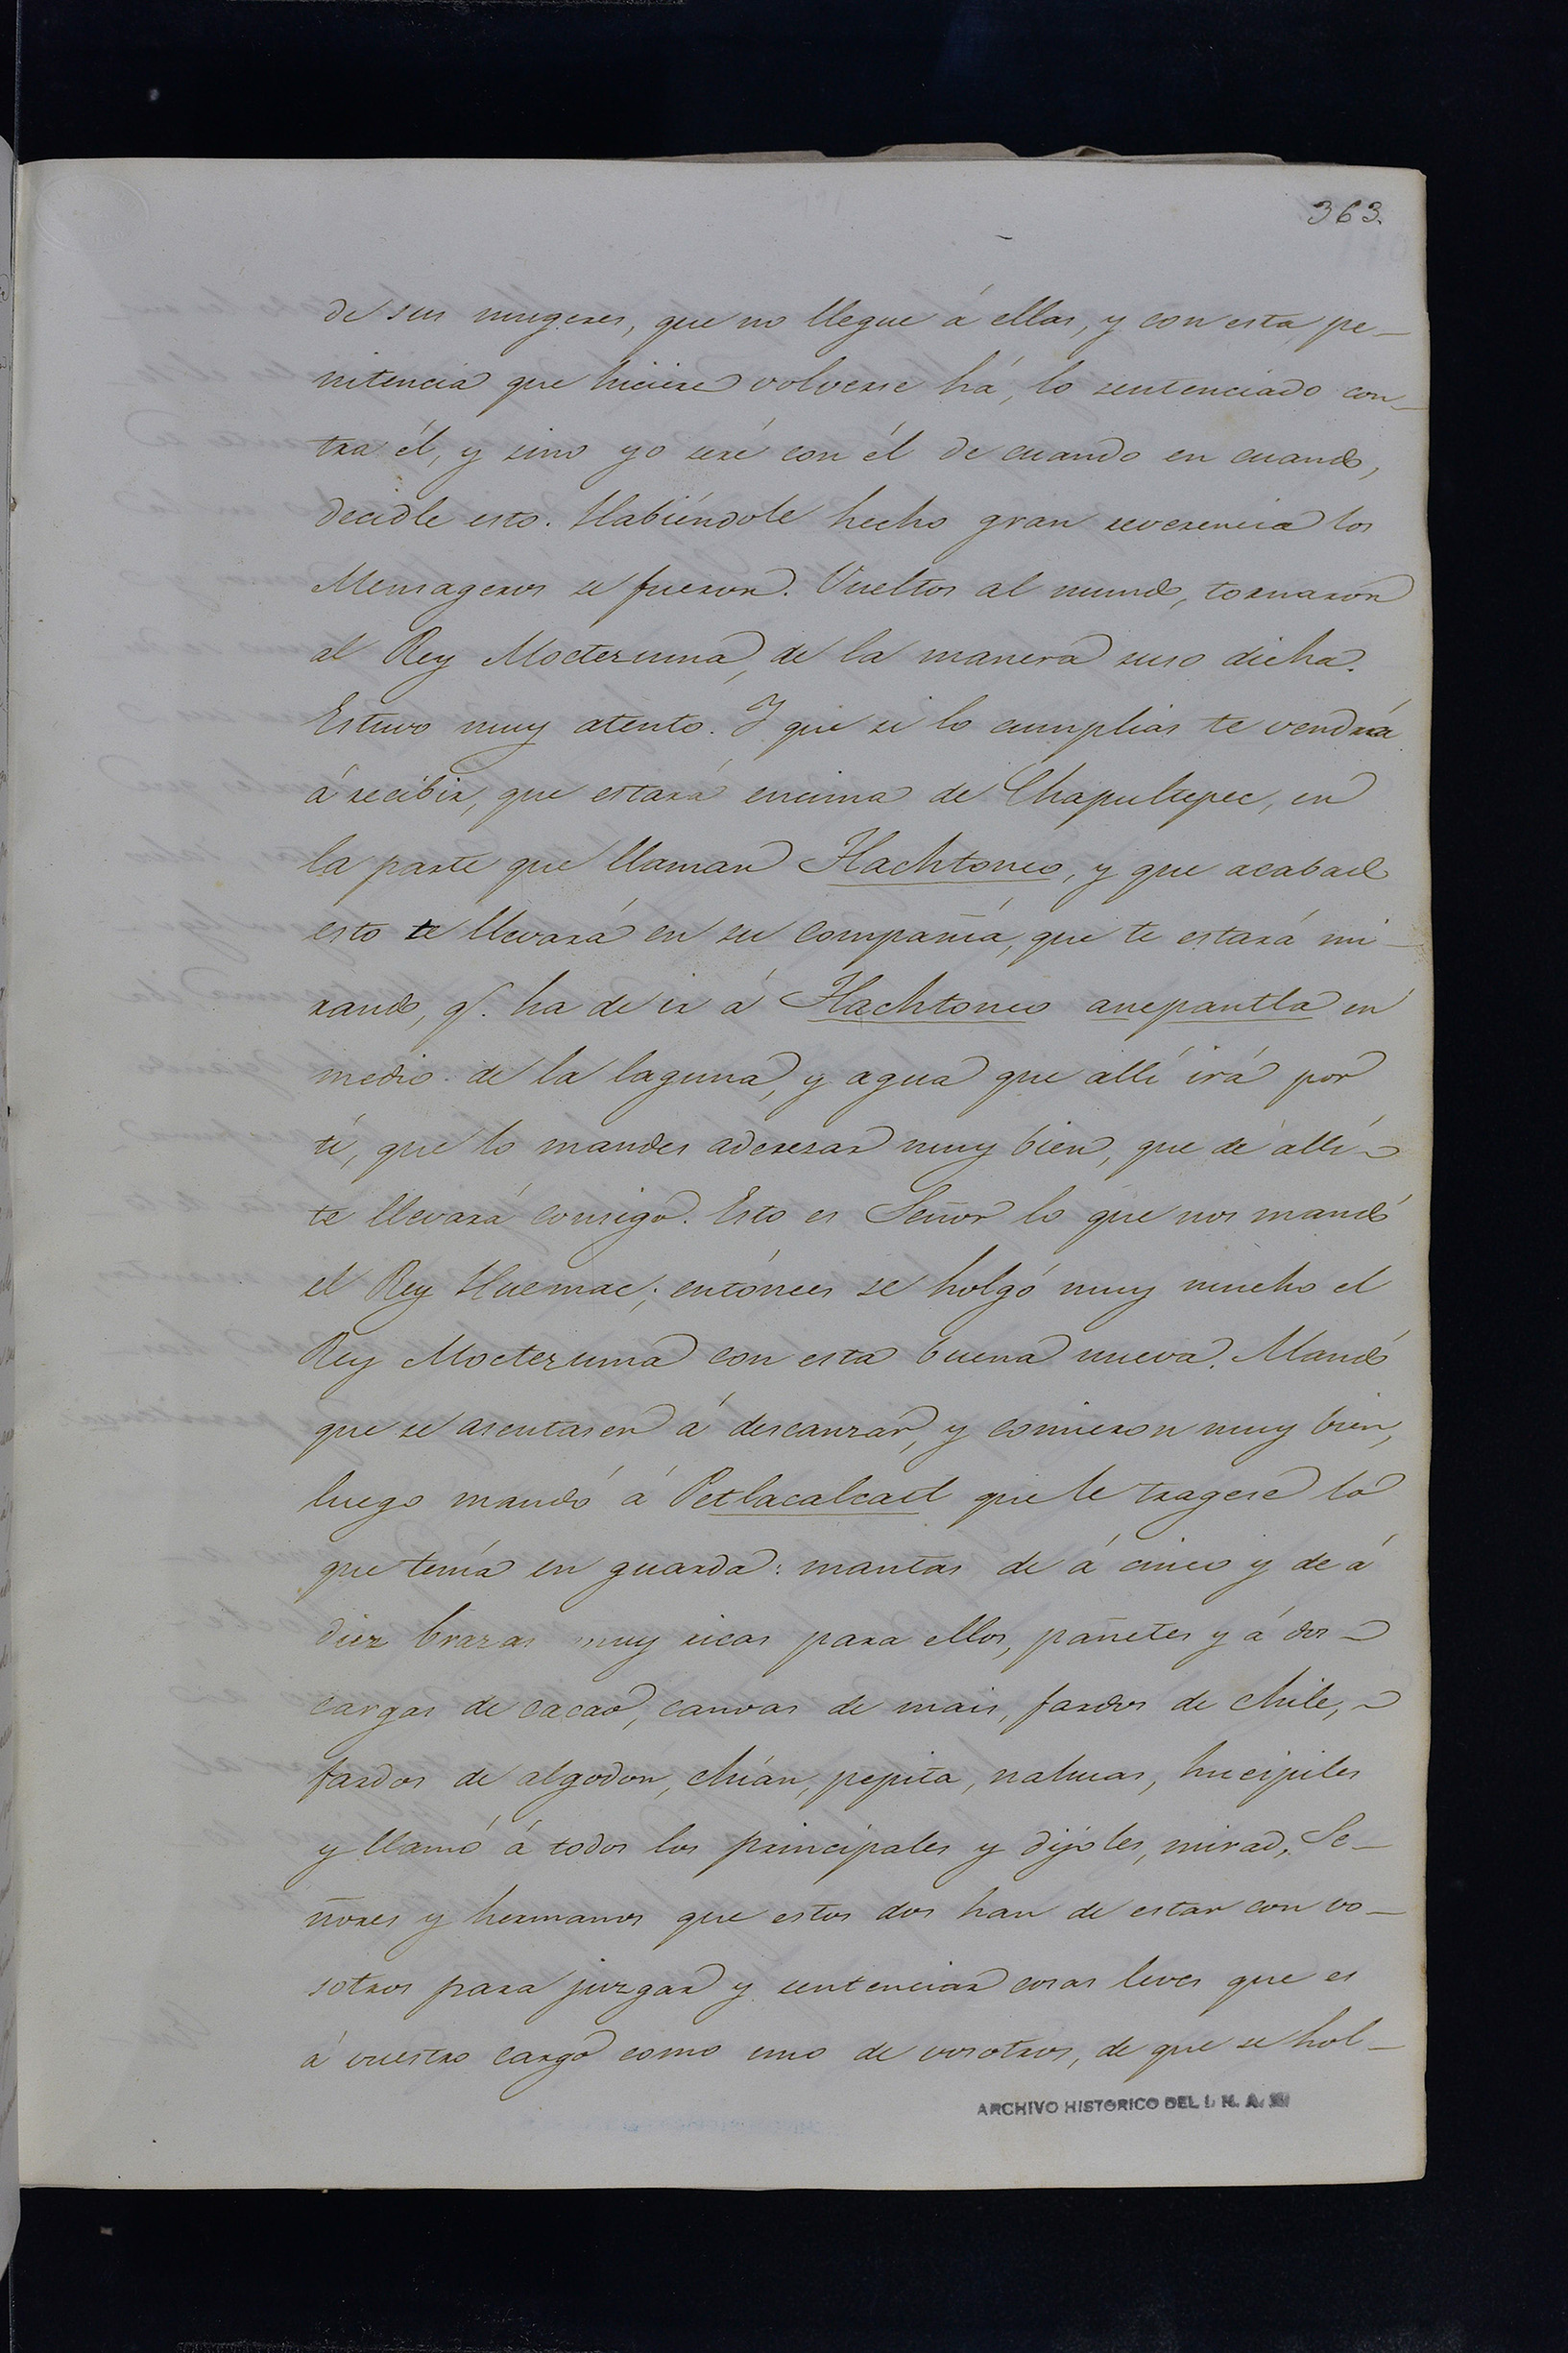 363.
de sus mugeres, que no llegue á ellas, y con esta pe-
nitencia que hiciere volverse há, lo sentenciado con-
tra él, y sino yo seré con él de cuando en cuando,
decidle esto. Habiéndole hecho gran reverencia los
Mensageros se fueron. Vueltos al mundo, tornaron
al Rey Moctezuma, de la manera suso dicha.
Estuvo muy atento. Y que si lo cumplias te vendrá
á recibir, que estará encima de Chapultepec, en
la parte que llaman Tlachtonco, y que acabado
esto te llevará en su compañía, que te estará mi-
rando, q.e ha de ir á Tlachtonco anepantla en
medio de la laguna, y agua que allí irá por
tí, que lo mandes aderezar muy bien, que de allí
te llevará consigo. Esto es Señor lo que nos mandó
el Rey Huemac; entónces se holgó muy mucho el
Rey Moctezuma con esta buena nueva. Mandó
que se asentasen á descanzar, y comieron muy bien,
luego mandó á Petlacalcatl que le tragese lo
que tenía en guarda: mantas de á cinco y de á
diez brazas muy ricas para ellos, pañetes y á dos
cargas de cacao, canoas de mais, fardos de chile,
fardos de algodon, chían, pepita, nahuas, hueipiles
y llamó á todos los principales y díjoles, mirad, Se-
ñores y hermanos que estos dos han de estar con vo-
sotros para juzgar y sentenciar cosas leves que es
á vuestro cargo como uno de vosotros, de que se hol-
ARCHIVO HISTORICO DEL I. N. A. H